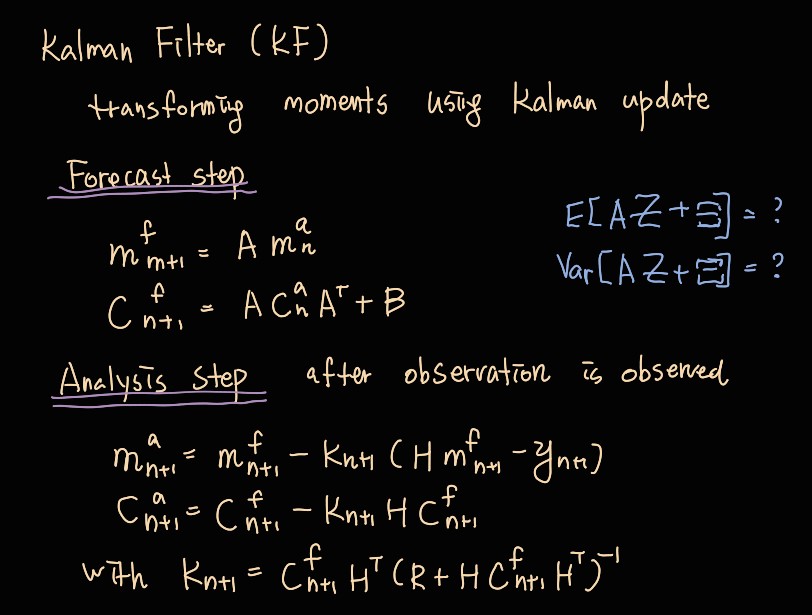 Kalman Filter (KF)
transforming moments using Kalman update
Forecast step
m^f_{m+1} = A m^a_n
C^f_{n+1} = A C^a_n A^T + B
E[AZ+Ξ] = ?
Var[AZ+Ξ] = ?
Analysis step after observation is observed
m^a_{n+1} = m^f_{n+1} - K_{n+1} (H m^f_{n+1} - y_{n+1})
C^a_{n+1} = C^f_{n+1} - K_{n+1} H C^f_{n+1}
with K_{n+1} = C^f_{n+1} H^T (R + H C^f_{n+1} H^T)^{-1}